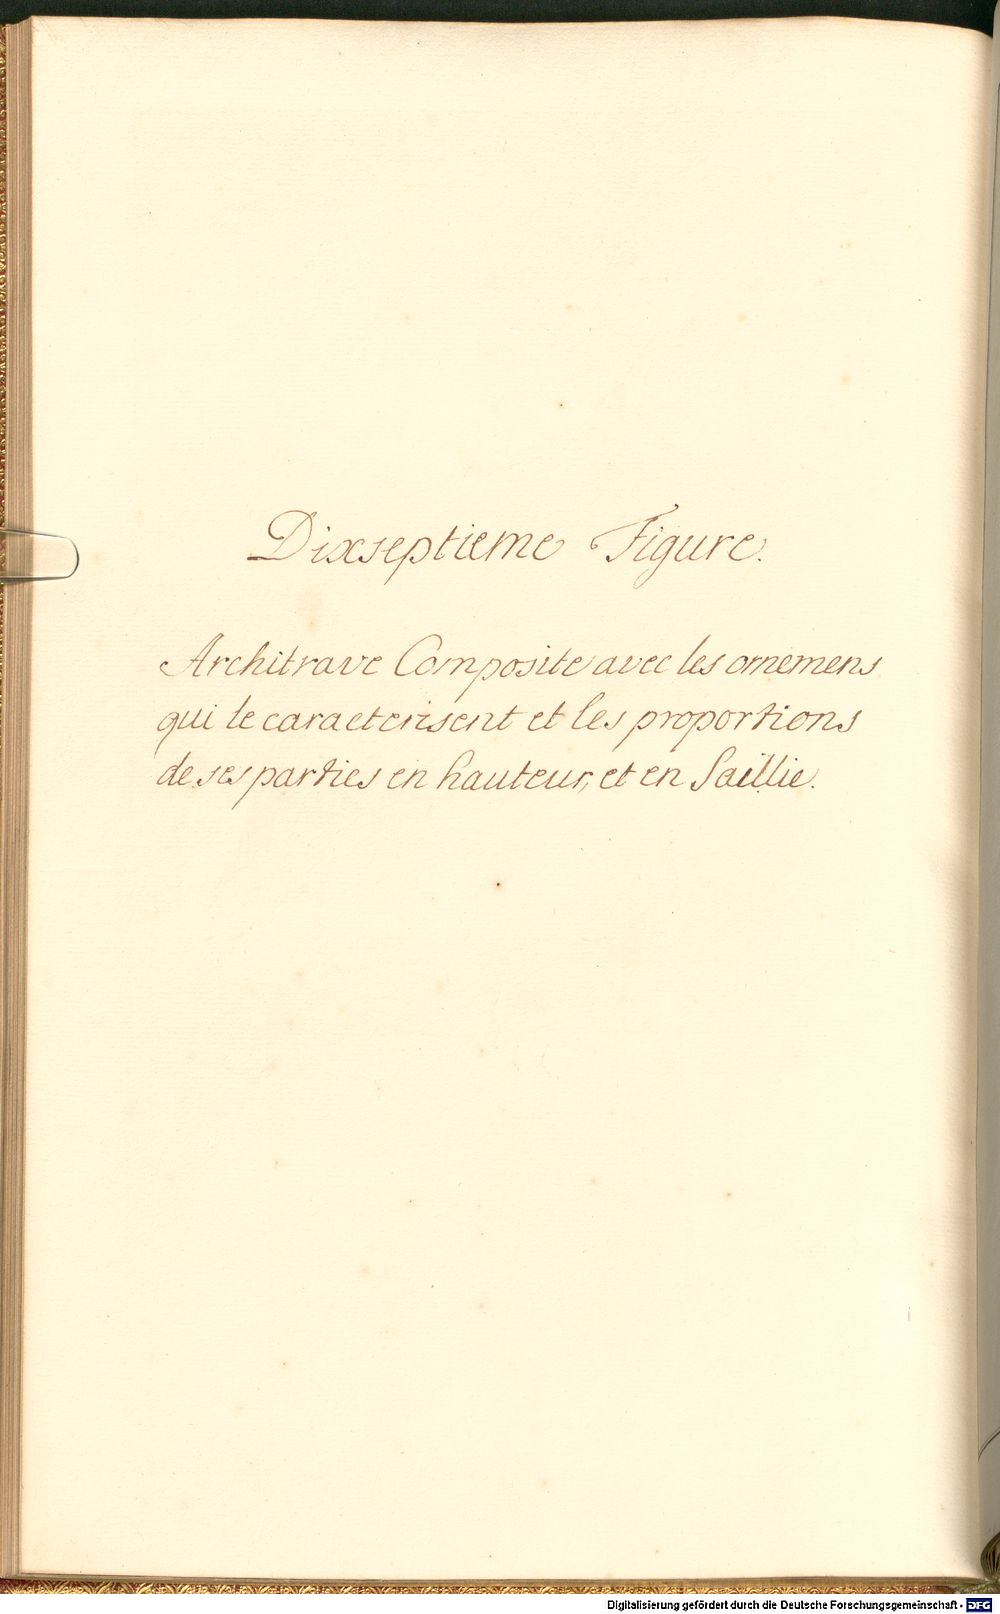 Dixseptieme Figure.
Architrave Composite avec les ornemens
qui le caracterisent et les proportions
de ses parties en hauteur, et en Saillie.
Digitalisierung gefördert durch die Deutsche Forschungsgemeinschaft - DFG